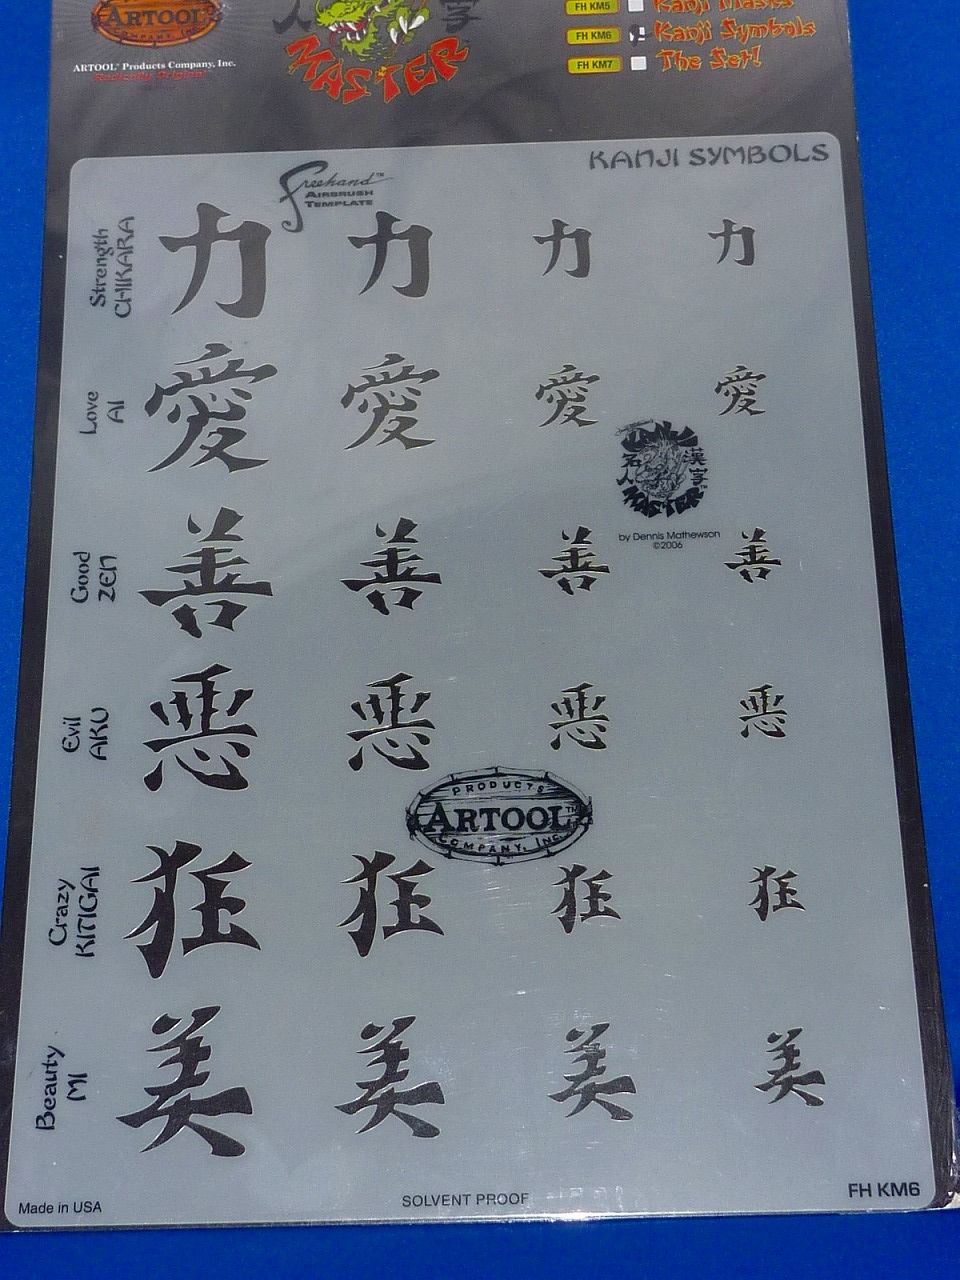 ARTOOL
COMPANY, INC.
ARTOOL® Products Company, Inc.
Radically Original!
人 字
MASTER
FH KM5 Kanji Masks
FH KM6 Kanji Symbols
FH KM7 The Set!
Freehand™
AIRBRUSH
TEMPLATE
KANJI SYMBOLS
Strength
CHIKARA
力 力 力 力
Love
AI
愛 愛 愛 愛
KANJI
名人 漢字
MASTER™
by Dennis Mathewson
©2006
Good
ZEN
善 善 善 善
Evil
AKU
悪 悪 悪 悪
PRODUCTS
ARTOOL™
COMPANY, INC.
Crazy
KITIGAI
狂 狂 狂 狂
Beauty
MI
美 美 美 美
Made in USA
SOLVENT PROOF
FH KM6